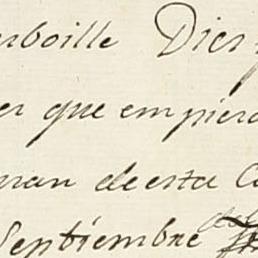 rboille Dies
er que empiera
man de esta Ca
Septiembre